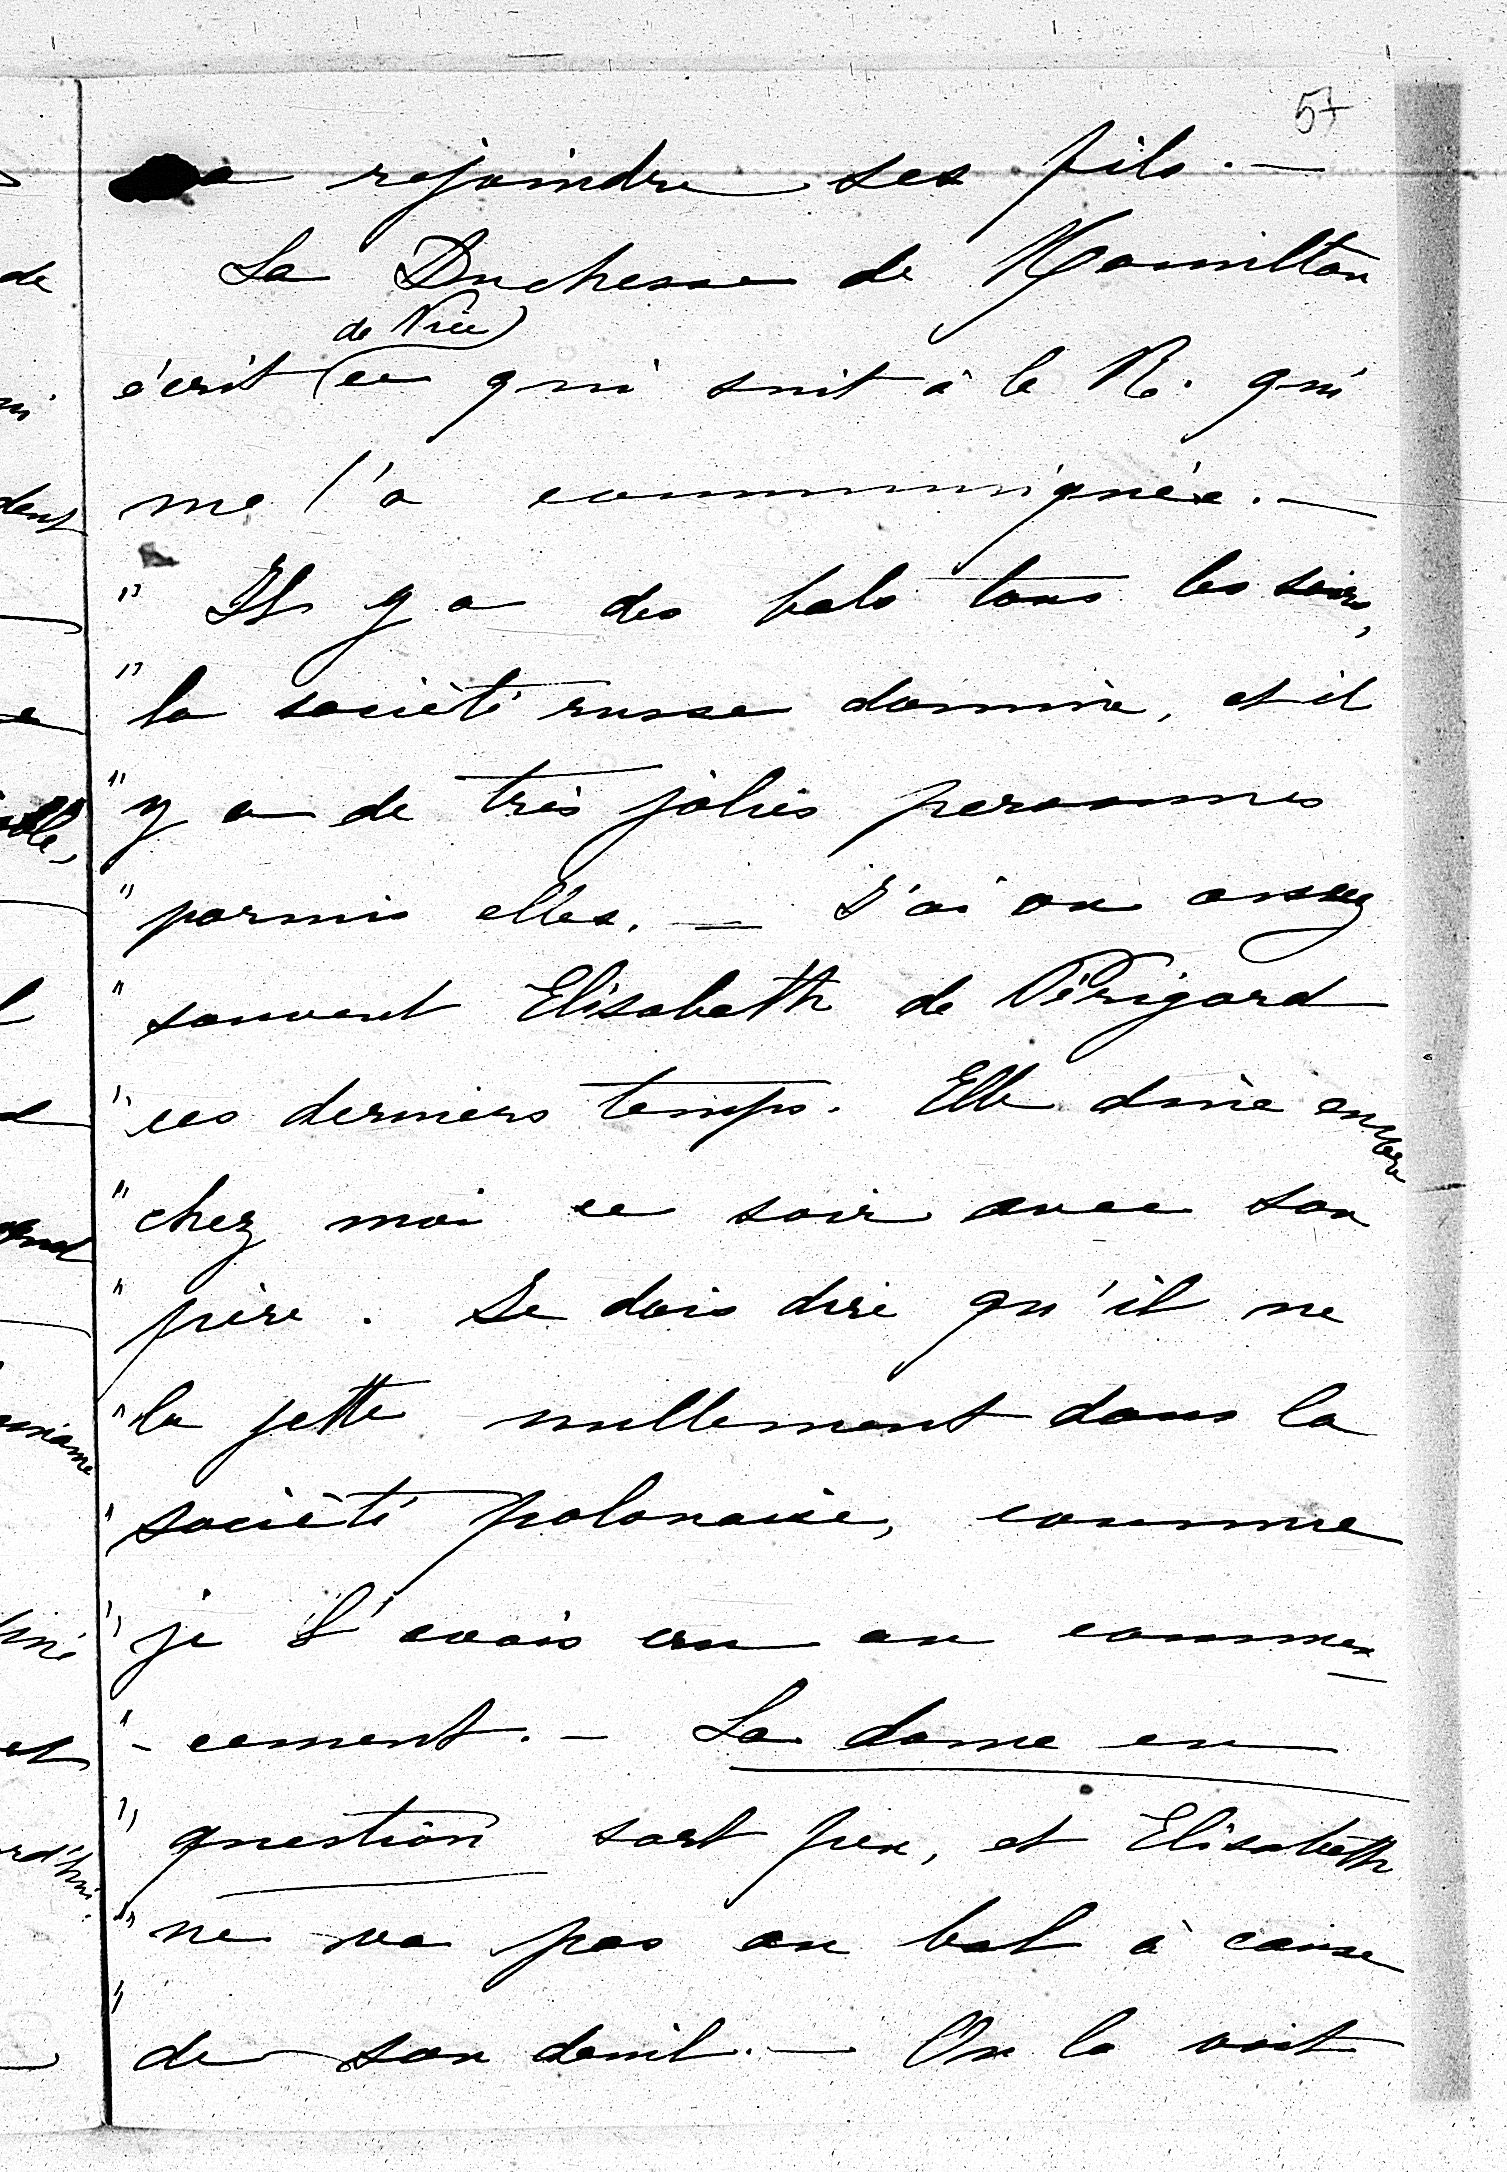 57
a rejoindre ses fils. —
La Duchesse de Hamilton
de Nice)
écrit (ce qui suit à la R. qui
me l'a communiquée. —
" Il y a des bals tous les soirs,
" la société russe domine, et il
" y a de très jolies personnes
" parmis elles. — J'ai vu assez
" souvent Elisabeth de Périgord
" ces derniers temps. Elle dine encore
" chez moi ce soir avec son
" père. Je dois dire qu'il ne
" la jette nullement dans la
" société polonaise, comme
" je l'avais cru au commen
" - cement. — La dame en
" question sort peu, et Elisabeth
" ne va pas au bal à cause
" de son deuil. — On la voit